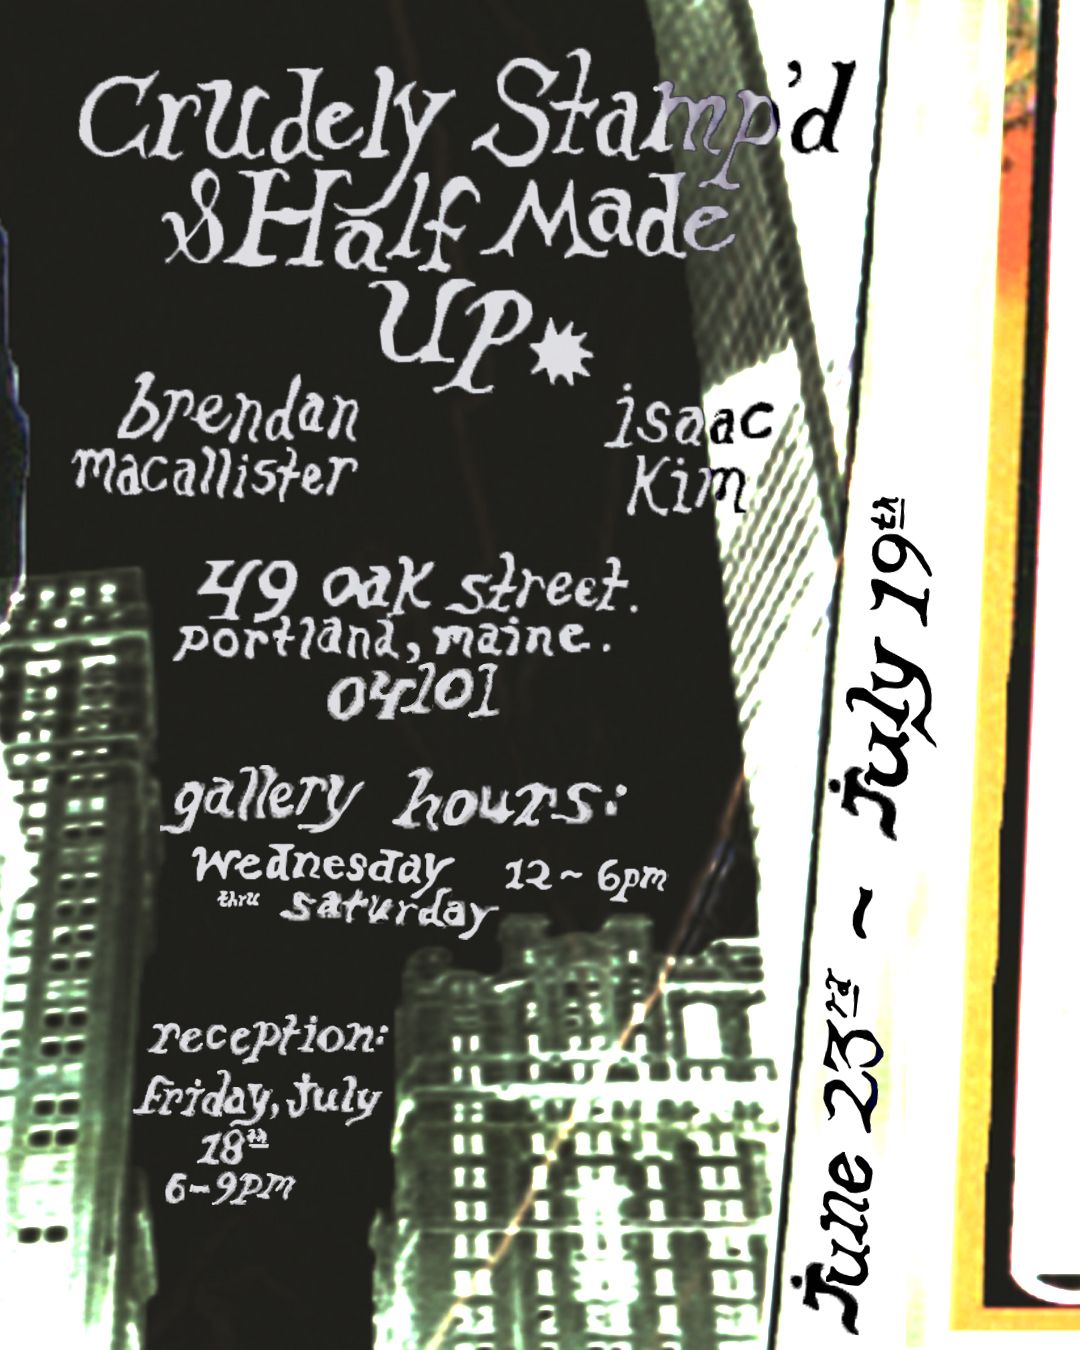 Crudely Stamp'd
& Half Made
Up.
brendan
macallister
isaac
Kim
49 oak street.
portland, maine.
04101
gallery hours:
wednesday 12~6pm
thru saturday
reception:
friday, july
18th
6-9pm
June 23rd ~ July 19th